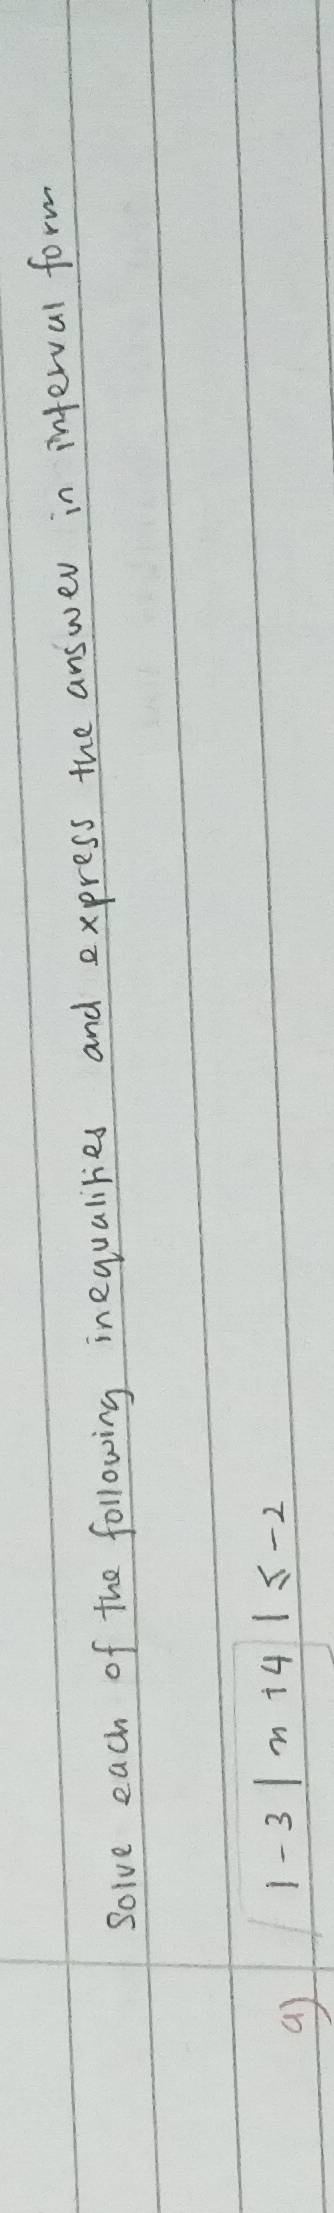 Solve each of the following inequalities and express the answer in interval form
a) 1 - 3 | n + 4 | ≤ -2